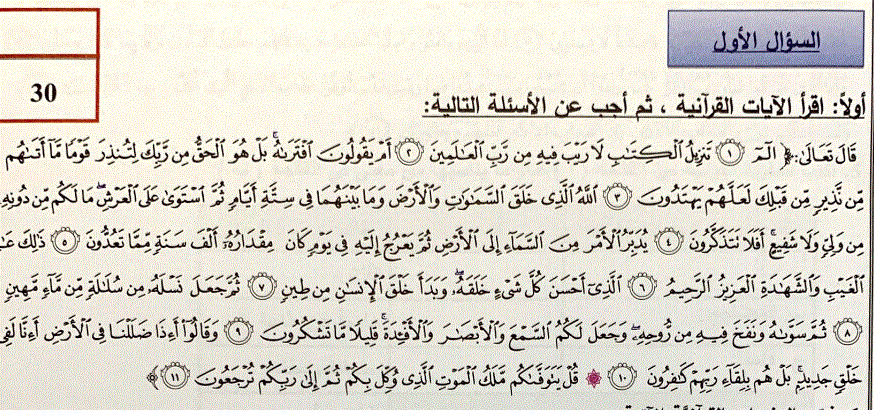 السؤال الأول
30
أولاً: اقرأ الآيات القرآنية ، ثم أجب عن الأسئلة التالية:
قَالَ تَعَالَىٰ: ﴿ الٓمٓ ١ تَنزِيلُ ٱلۡكِتَٰبِ لَا رَيۡبَ فِيهِ مِن رَّبِّ ٱلۡعَٰلَمِينَ ٢ أَمۡ يَقُولُونَ ٱفۡتَرَىٰهُۚ بَلۡ هُوَ ٱلۡحَقُّ مِن رَّبِّكَ لِتُنذِرَ قَوۡمٗا مَّآ أَتَىٰهُم
مِّن نَّذِيرٖ مِّن قَبۡلِكَ لَعَلَّهُمۡ يَهۡتَدُونَ ٣ ٱللَّهُ ٱلَّذِي خَلَقَ ٱلسَّمَٰوَٰتِ وَٱلۡأَرۡضَ وَمَا بَيۡنَهُمَا فِي سِتَّةِ أَيَّامٖ ثُمَّ ٱسۡتَوَىٰ عَلَى ٱلۡعَرۡشِۖ مَا لَكُم مِّن دُونِهِۦ
مِن وَلِيّٖ وَلَا شَفِيعٍۚ أَفَلَا تَتَذَكَّرُونَ ٤ يُدَبِّرُ ٱلۡأَمۡرَ مِنَ ٱلسَّمَآءِ إِلَى ٱلۡأَرۡضِ ثُمَّ يَعۡرُجُ إِلَيۡهِ فِي يَوۡمٖ كَانَ مِقۡدَارُهُۥٓ أَلۡفَ سَنَةٖ مِّمَّا تَعُدُّونَ ٥ ذَٰلِكَ
ٱلۡغَيۡبِ وَٱلشَّهَٰدَةِ ٱلۡعَزِيزُ ٱلرَّحِيمُ ٦ ٱلَّذِيٓ أَحۡسَنَ كُلَّ شَيۡءٍ خَلَقَهُۥۖ وَبَدَأَ خَلۡقَ ٱلۡإِنسَٰنِ مِن طِينٖ ٧ ثُمَّ جَعَلَ نَسۡلَهُۥ مِن سُلَٰلَةٖ مِّن مَّآءٖ مَّهِينٖ
٨ ثُمَّ سَوَّىٰهُ وَنَفَخَ فِيهِ مِن رُّوحِهِۦۖ وَجَعَلَ لَكُمُ ٱلسَّمۡعَ وَٱلۡأَبۡصَٰرَ وَٱلۡأَفۡـِٔدَةَۚ قَلِيلٗا مَّا تَشۡكُرُونَ ٩ وَقَالُوٓاْ أَءِذَا ضَلَلۡنَا فِي ٱلۡأَرۡضِ أَءِنَّا لَفِي
خَلۡقٖ جَدِيدِۭۚ بَلۡ هُم بِلِقَآءِ رَبِّهِمۡ كَٰفِرُونَ ١٠ ۞ قُلۡ يَتَوَفَّىٰكُم مَّلَكُ ٱلۡمَوۡتِ ٱلَّذِي وُكِّلَ بِكُمۡ ثُمَّ إِلَىٰ رَبِّكُمۡ تُرۡجَعُونَ ١١ ﴾